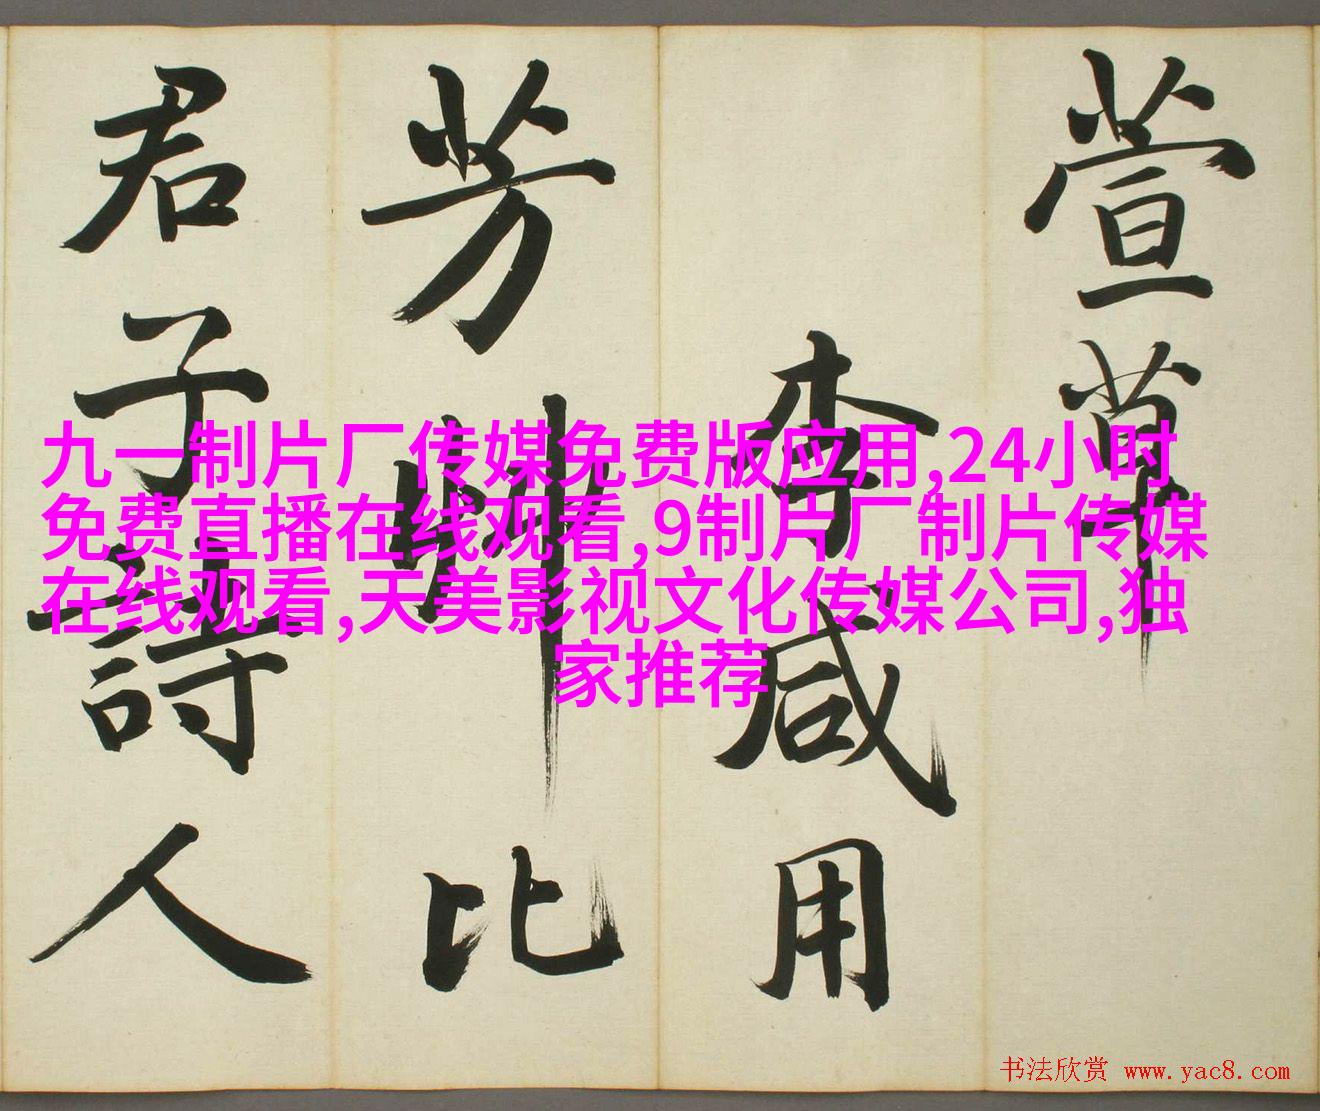 萱草
李咸用
芳艸比
君子詩人
九一制片厂传媒免费版应用,24小时
免费直播在线观看,9制片厂制片传媒
在线观看,天美影视文化传媒公司,独
家推荐
书法欣赏 www.yac8.com